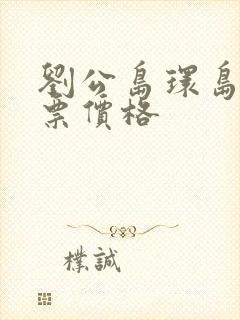 劉公島環島
票價格
樸誠